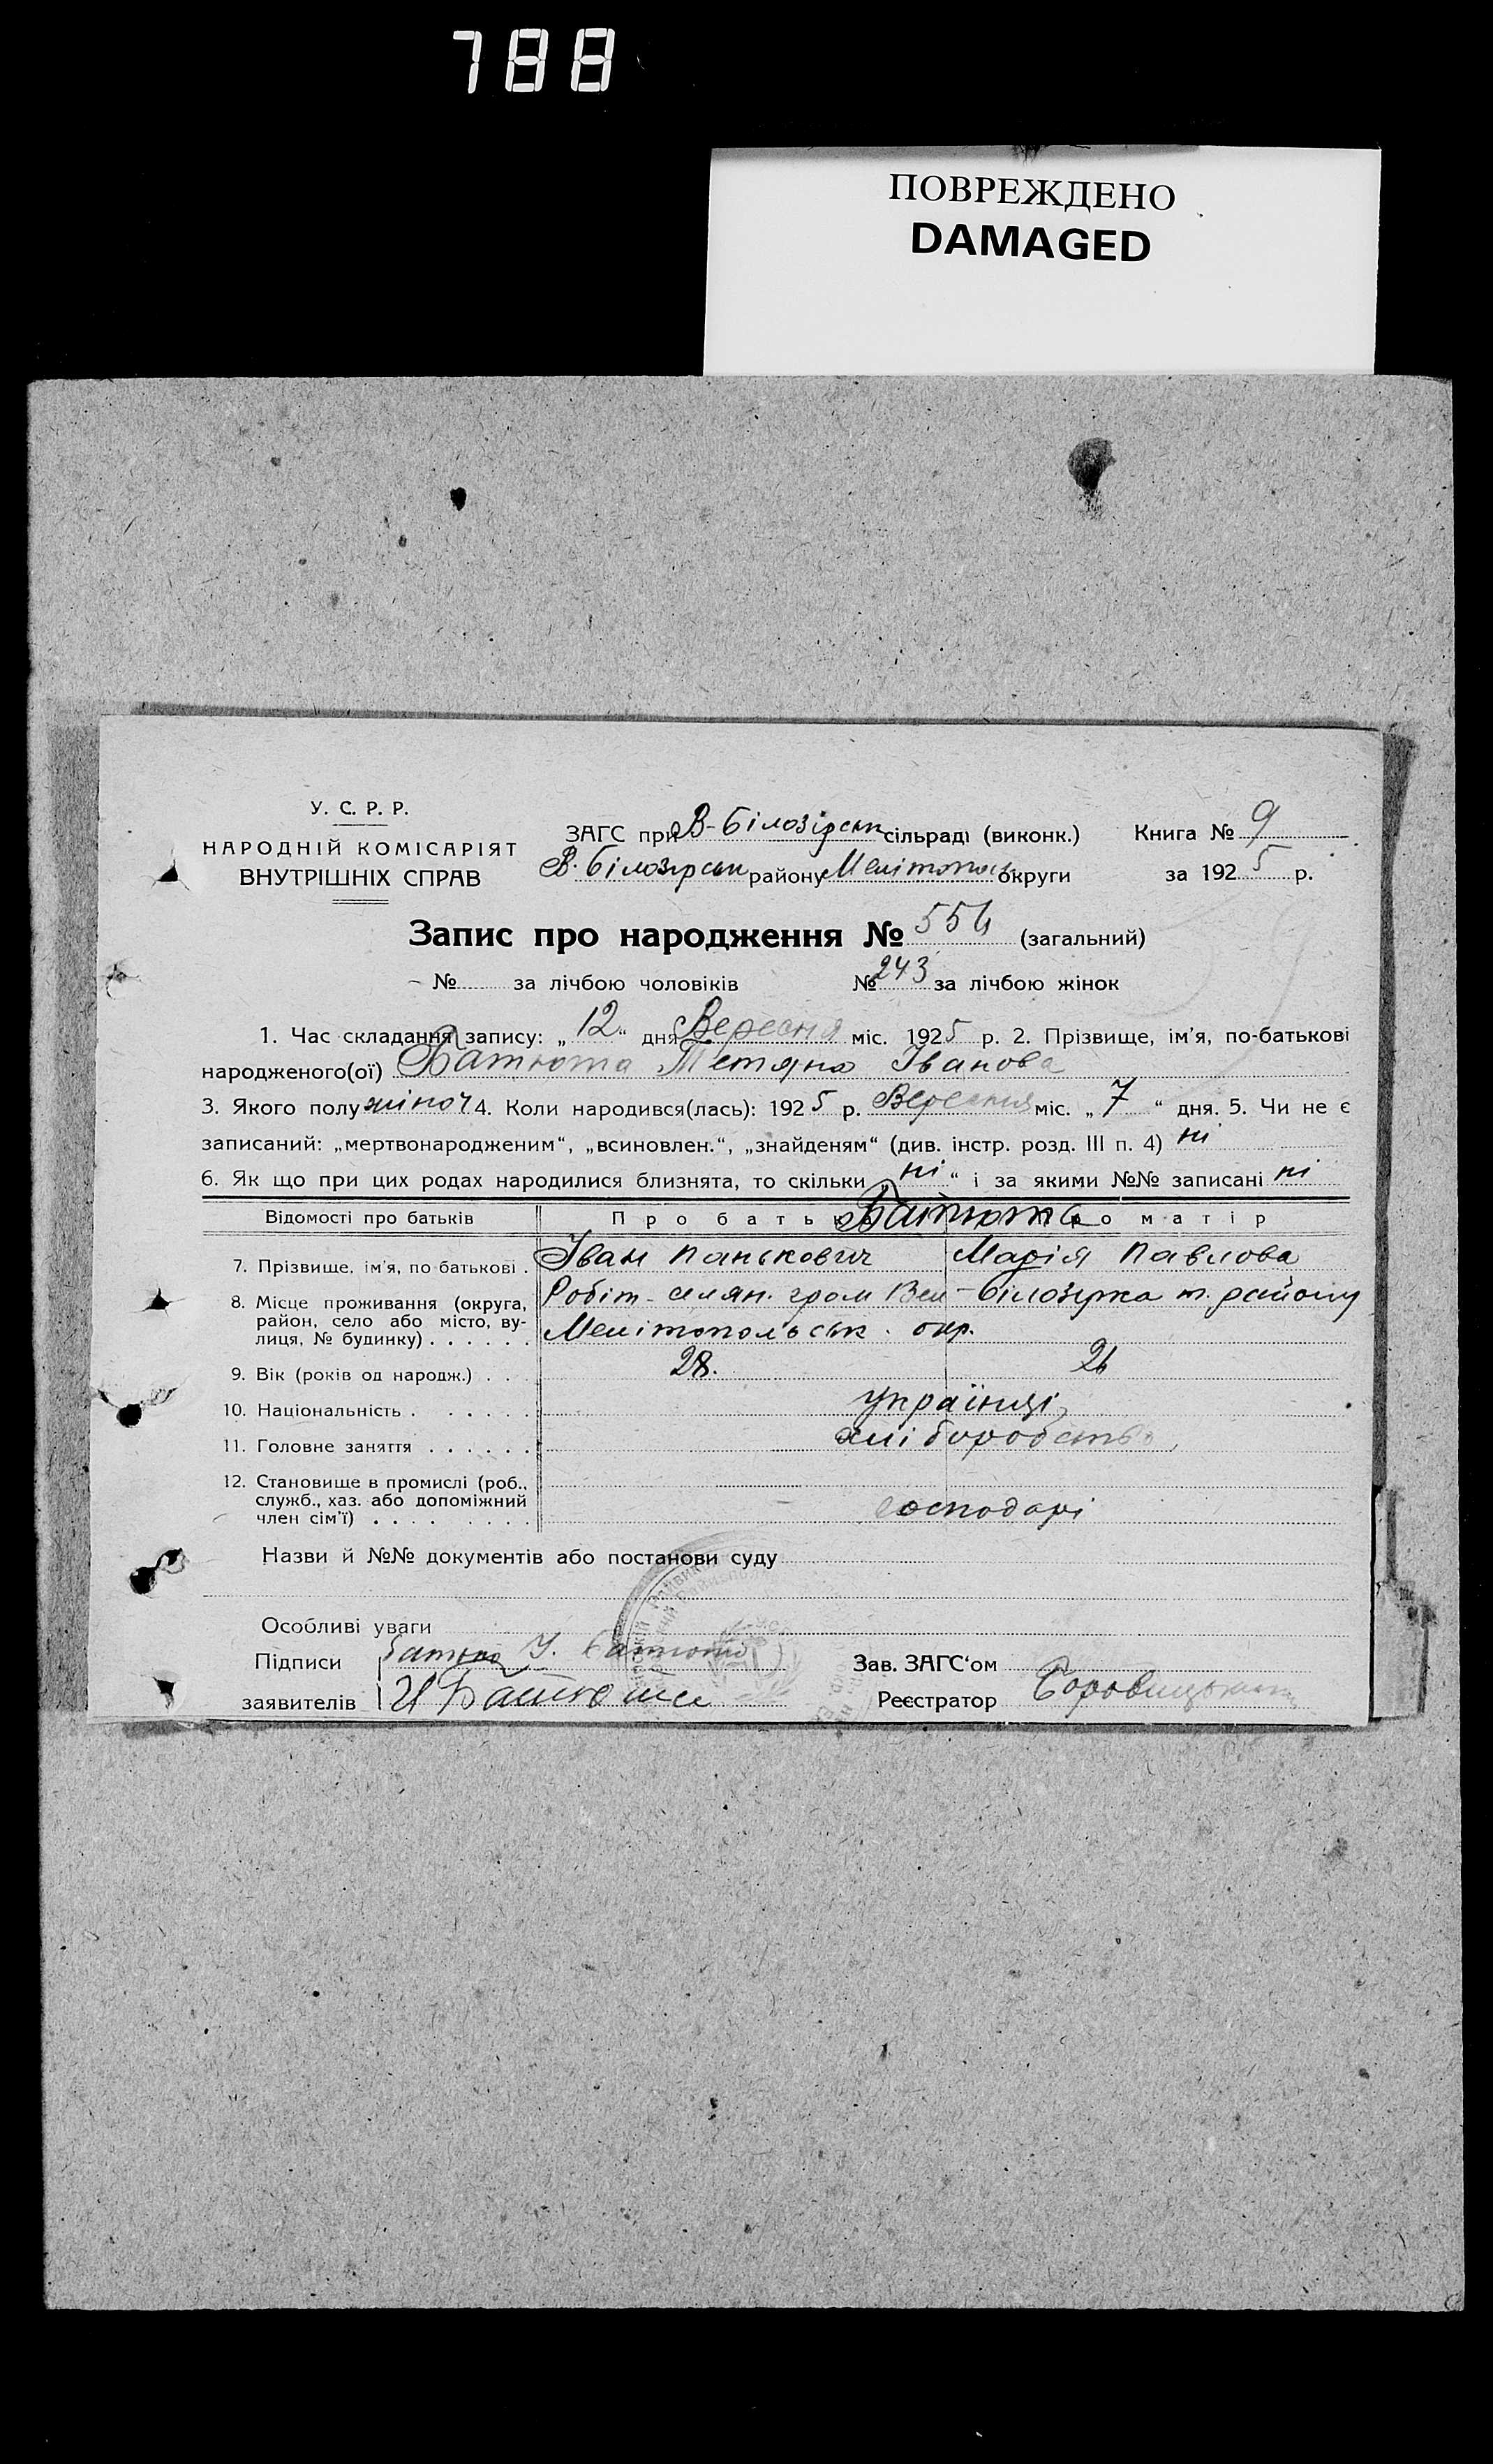 788
ПОВРЕЖДЕНО
DAMAGED
У. С. Р. Р.
НАРОДНІЙ КОМІСАРІЯТ
ВНУТРІШНІХ СПРАВ
ЗАГС при В-Білозірськ сільраді (виконк.)
В. Білозірськ району Мелітопольс округи
Книга № 9
за 1925 р.
Запис про народження № 554 (загальний)
– № за лічбою чоловіків № 243 за лічбою жінок
1. Час складання запису: „12“ дня Вересня міс. 1925 р. 2. Прізвище, ім'я, по-батькові
народженого(ої) Батюта Тетяна Іванова
3. Якого полу жіноч 4. Коли народився(лась): 1925 р. Вересня міс. „7“ дня. 5. Чи не є
записаний: „мертвонародженим“, „всиновлен.“, „знайденям“ (див. інстр. розд. III п. 4) ні
6. Як що при цих родах народилися близнята, то скільки „ні“ і за якими №№ записані ні
Відомості про батьків Про батька Про матір
Батюта
7. Прізвище, ім'я, по-батькові . Іван Панькович Марія Павлова
8. Місце проживання (округа, Робіт-селян. гром Вел-Білозірка т. району
район, село або місто, ву-
лиця, № будинку) . . . . . . Мелітопольськ. окр.
9. Вік (років од народж.) . . . 28. 26
10. Національність . . . . . . українці
11. Головне заняття . . . . . . хліборобство
12. Становище в промислі (роб.,
служб., хаз. або допоміжний
член сім'ї) . . . . . . . . Господарі
Назви й №№ документів або постанови суду
Особливі уваги
Підписи Батюта У. Батюта
заявителів И Батюта
Зав. ЗАГС'ом
Реєстратор